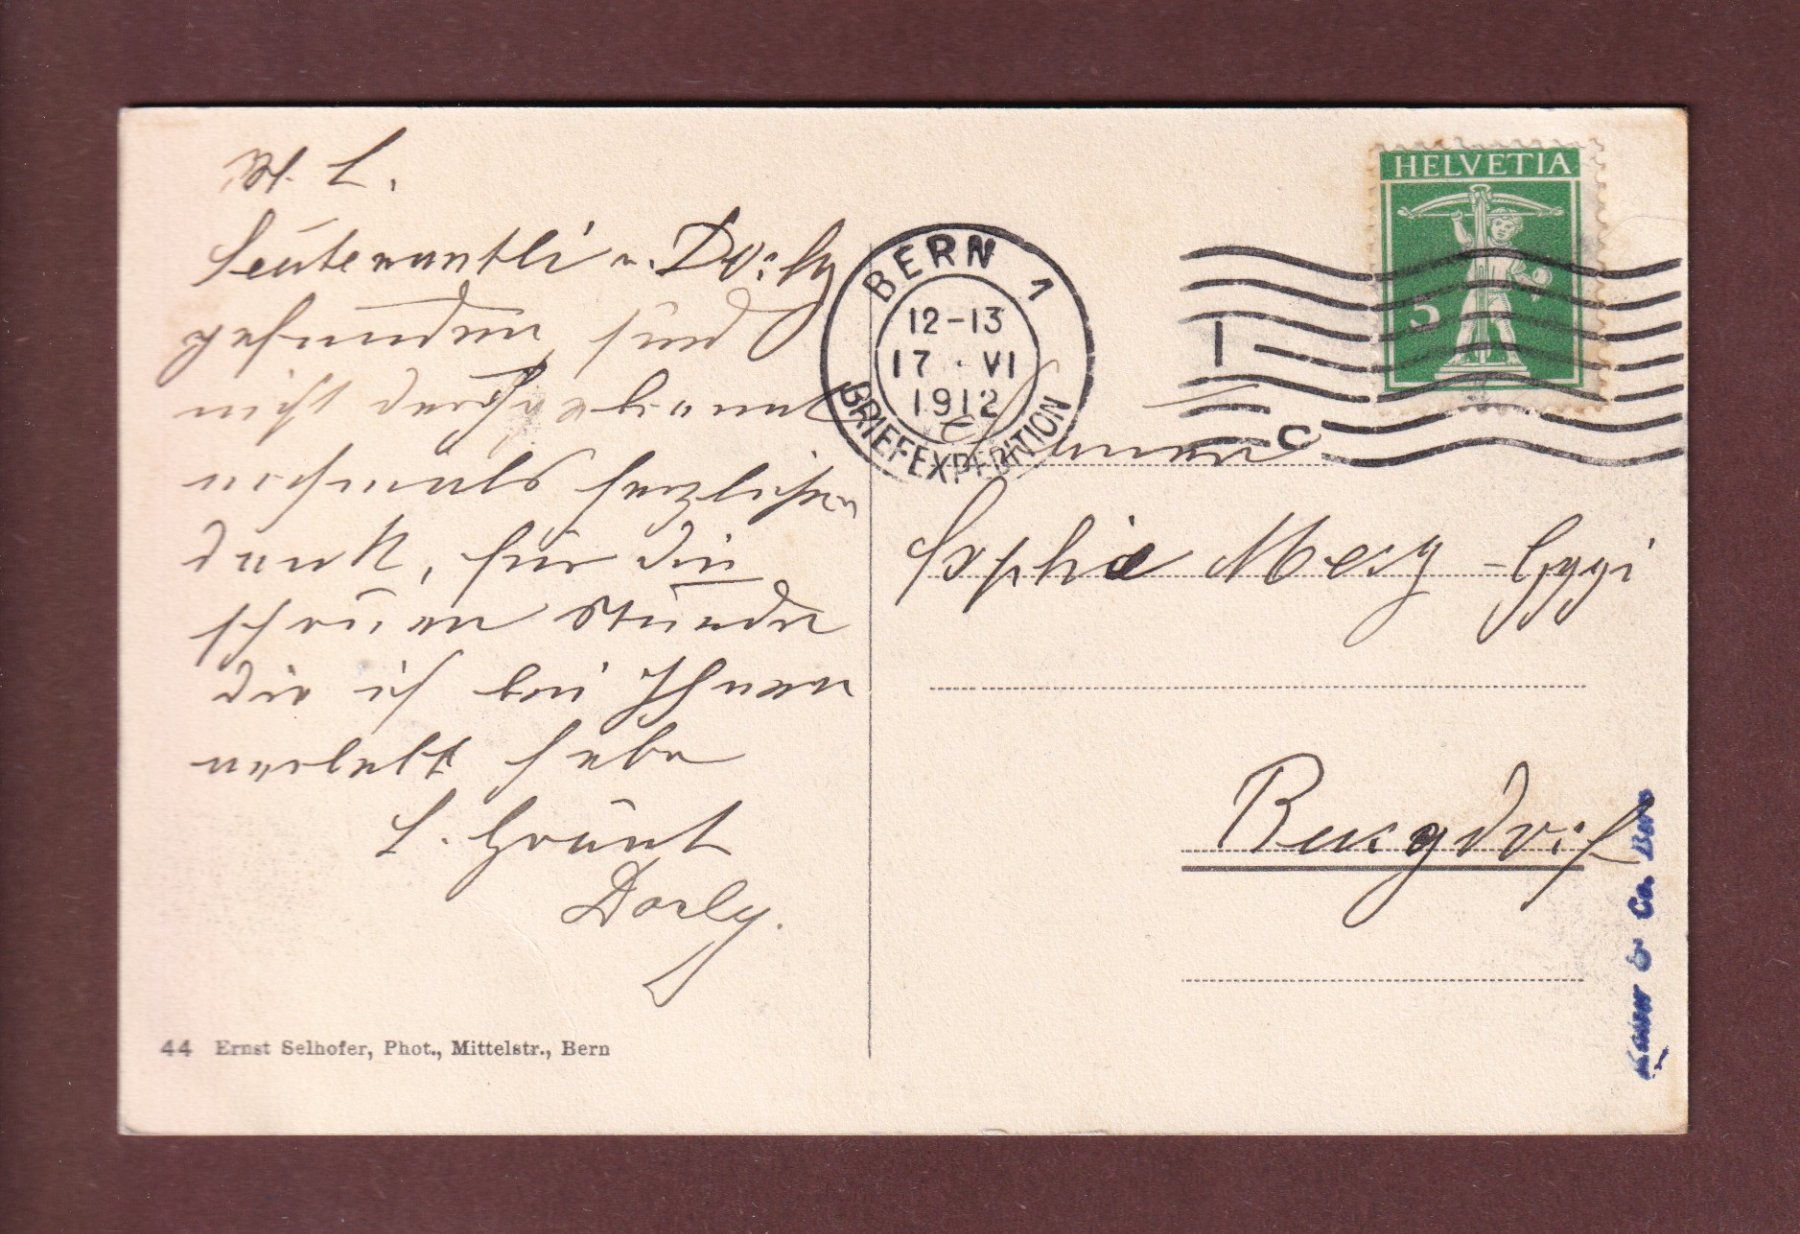 M. L.
Leutenantli u. Dorly
gefunden, sind
nicht
nochmals herzlichen
Dank, für die
schönen Stunden
die ich bei Ihnen
verlebt habe
L. Grüsst
Dorly.
44 Ernst Selhofer, Phot., Mittelstr., Bern
BERN 1
12-13
17 · VI
1912
BRIEFEXPEDITION
HELVETIA
5
Sophie Merz - Eggi
Burgdorf
Kaiser & Co. Bern